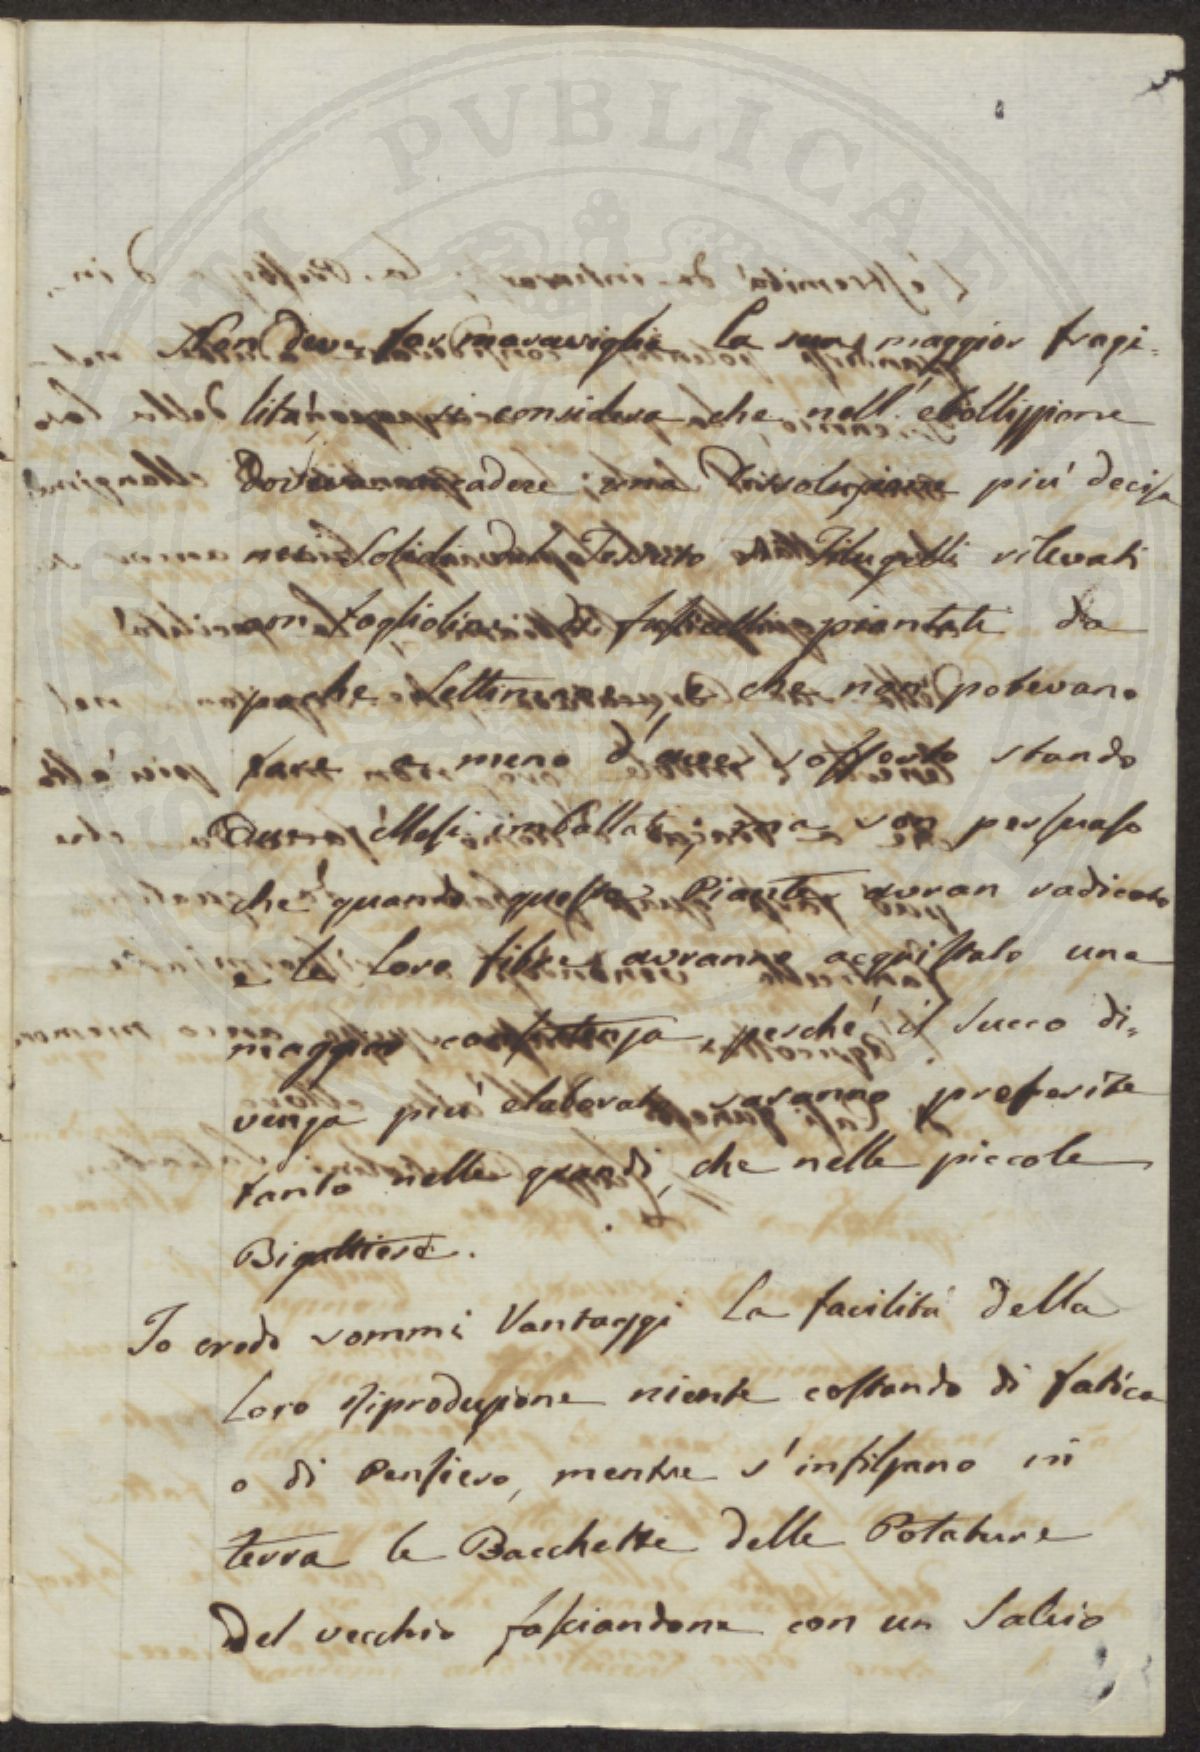 Non deve far maraviglia la sua maggior fragi=
lità, si considera che nell'ebollizzione
doveva accadere una dissoluzione più decisa
nei solidi del Tessuto de Filugelli rilevati
con foglioline di fusticelli piantati da
poche settimane, e che non potevano
fare a meno d'aver sofferto stando
due Mesi imballati; ma son persuaso
che quando queste Piante avran radicato
e le loro fibre avranno acquistato una
maggior consistenza, perchè il succo di=
venga più elaborato saranno preferite
tanto nelle grandi, che nelle piccole
Bigattiere.
Io credo sommi Vantaggi la facilità della
loro Riproduzione niente costando di fatica
o di Pensiero, mentre s'infilzano in
terra le Bacchette delle Potature
del vecchio fasciandone con un Salcio
PVBLICAE